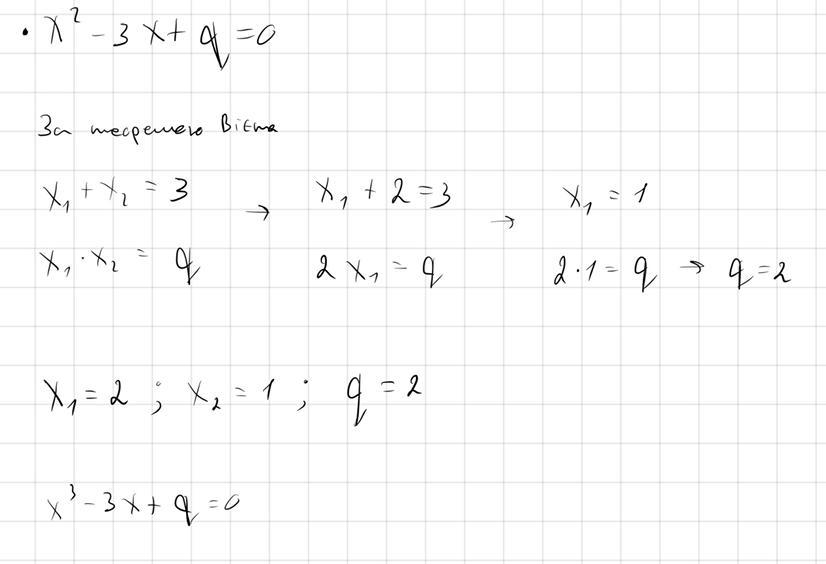 • x² - 3x + q = 0
За теоремою Вієта
x₁ + x₂ = 3 → x₁ + 2 = 3 → x₁ = 1
x₁ · x₂ = q 2x₁ = q 2 · 1 = q → q = 2
x₁ = 2 ; x₂ = 1 ; q = 2
x³ - 3x + q = 0